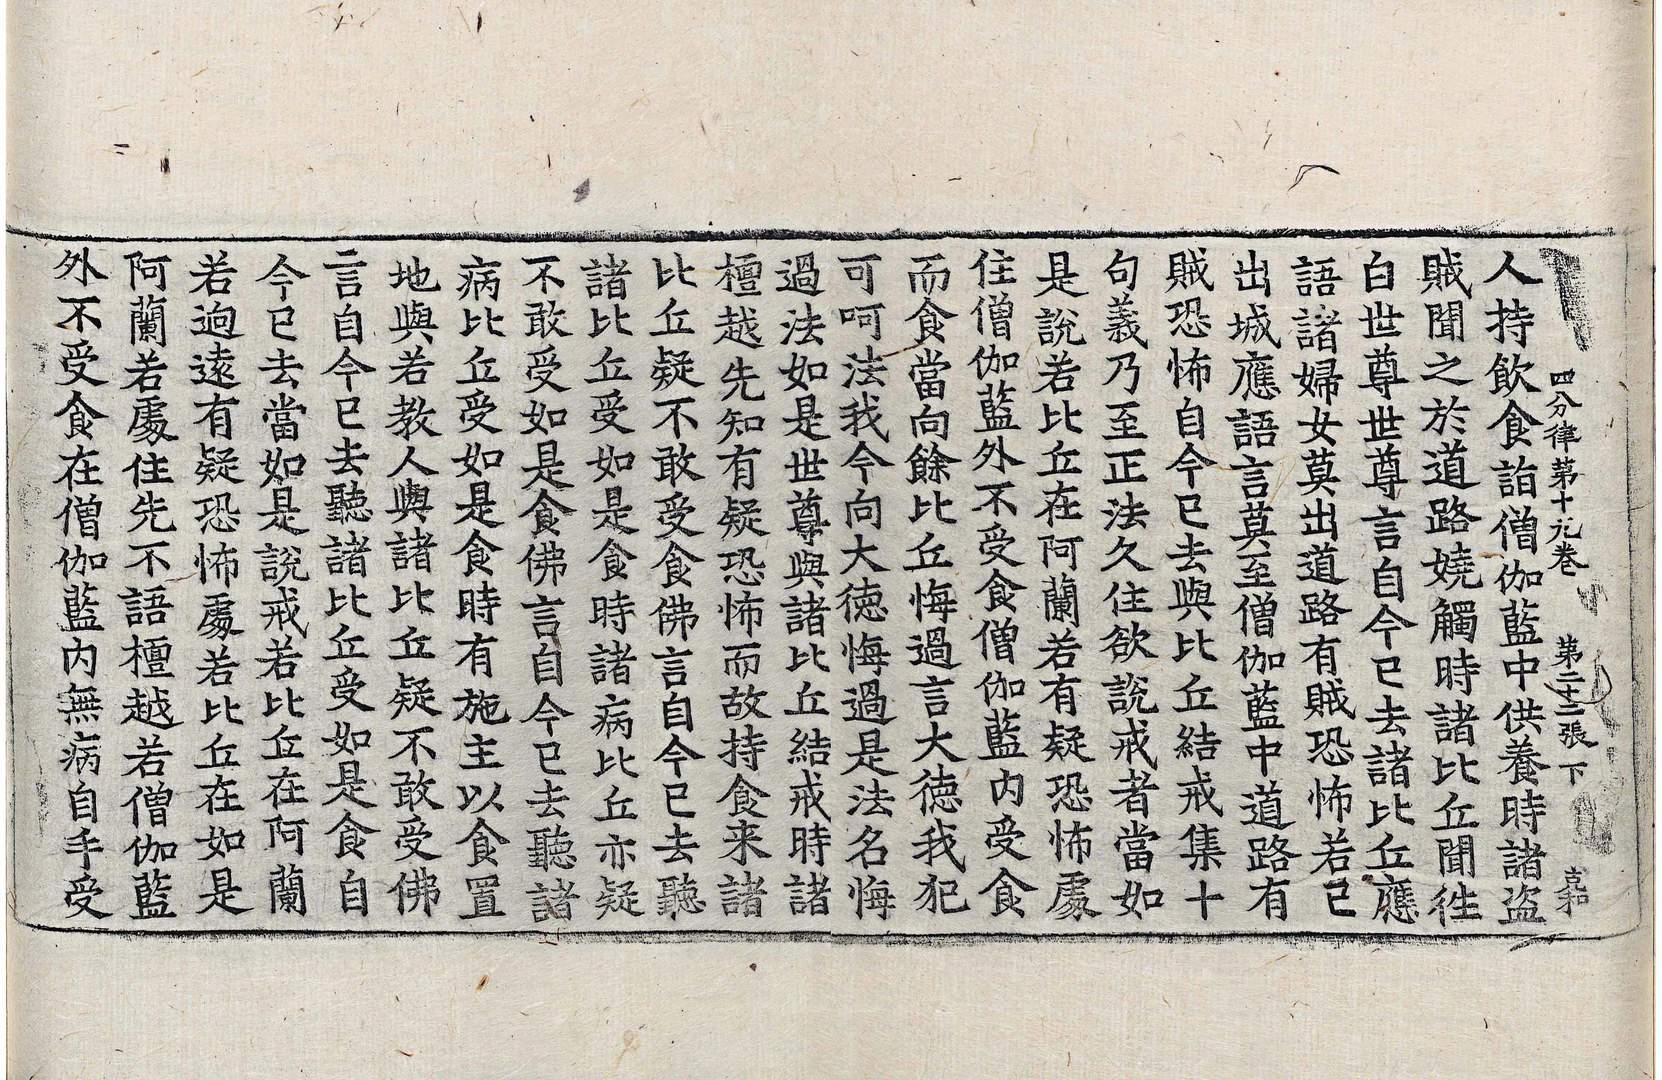 四分律第十九卷 第二十二張 下 吉和
人持飲食詣僧伽藍中供養時諸盜
賊聞之於道路嬈觸時諸比丘聞徃
白世尊世尊言自今已去諸比丘應
語諸婦女莫出道路有賊恐怖若已
出城應語言莫至僧伽藍中道路有
賊恐怖自今已去與比丘結戒集十
句義乃至正法久住欲說戒者當如
是說若比丘在阿蘭若有疑恐怖處
住僧伽藍外不受食僧伽藍內受食
而食當向餘比丘悔過言大德我犯
可呵法我今向大德悔過是法名悔
過法如是世尊與諸比丘結戒時諸
檀越先知有疑恐怖而故持食来諸
比丘疑不敢受食佛言自今已去聽
諸比丘受如是食時諸病比丘亦疑
不敢受如是食佛言自今已去聽諸
病比丘受如是食時有施主以食置
地與若教人與諸比丘疑不敢受佛
言自今已去聽諸比丘受如是食自
今已去當如是說戒若比丘在阿蘭
若逈遠有疑恐怖處若比丘在如是
阿蘭若處住先不語檀越若僧伽藍
外不受食在僧伽藍內無病自手受